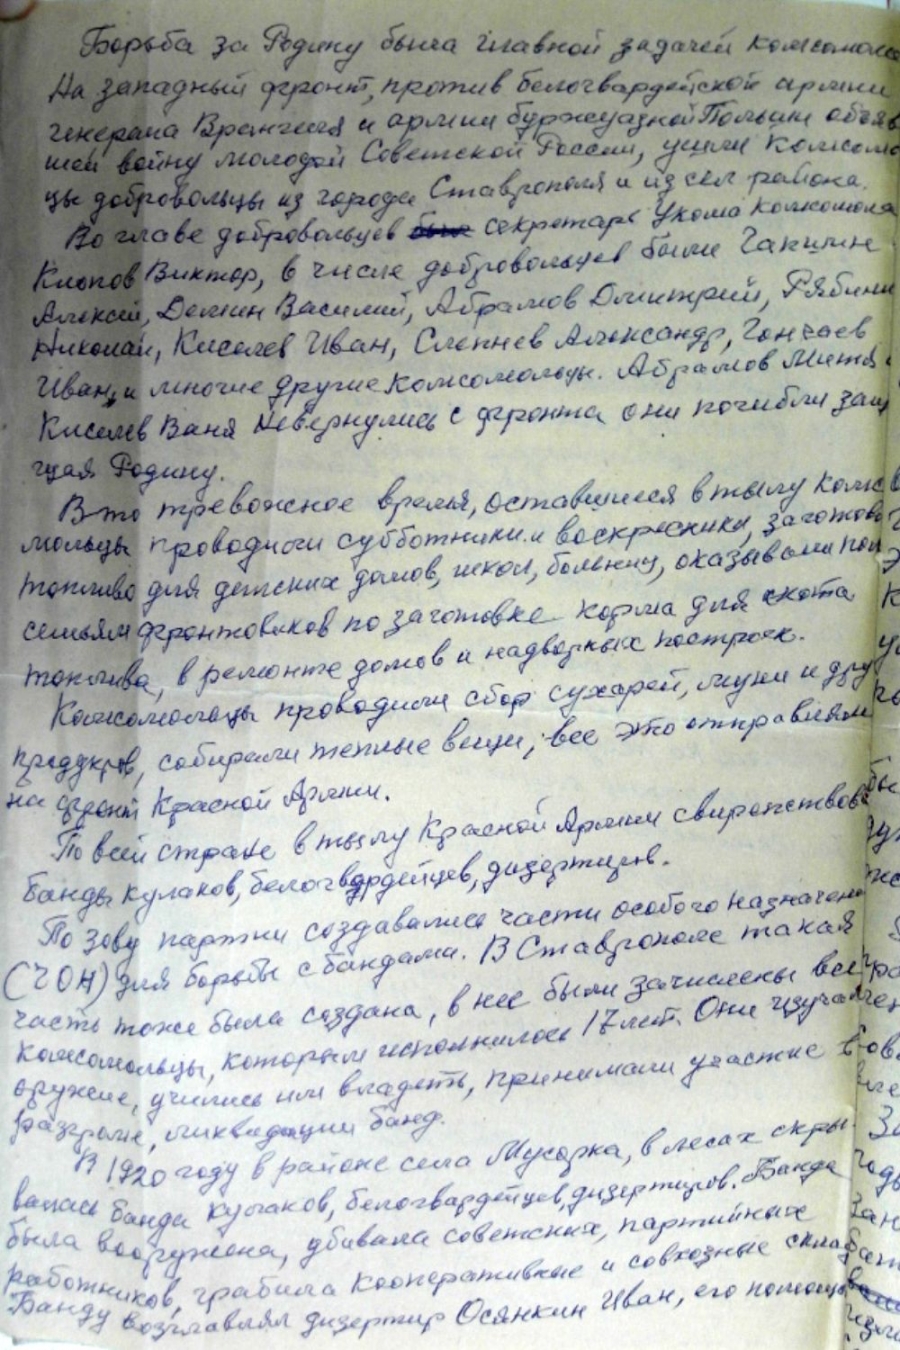 Борьба за Родину была главной задачей комсомола
На западный фронт, против белогвардейской армии
генерала Врангеля и армии буржуазной Польши объяв
шей войну молодой Советской России, ушли комсомо
цы добровольцы из города Ставрополя и из сел района.
Во главе добровольцев был секретарь Укома комсомола
Клопов Виктор, в числе добровольцев были Гапилин
Алексей, Демин Василий, Абрамов Дмитрий, Рябини
Николай, Киселев Иван, Слепнев Александр, Гончаев
Иван, и многие другие комсомольцы. Абрамов Митя и
Киселев Ваня невернулись с фронта они погибли защ
щая Родину.
В то тревожное время, оставшиеся в тылу комсо
мольцы проводили субботники и воскресники, заготовл
топливо для детских домов, школ, больниц, оказывали пом
семьям фронтовиков по заготовке корма для скота
топлива, в ремонте домов и надворных построек.
Комсомольцы проводили сбор сухарей, муки и дру
продуктов, собирали теплые вещи, все это отправляли
на фронт Красной Армии.
По всей стране в тылу Красной Армии свирепствова
банды кулаков, белогвардейцев, дизертиров.
По зову партии создавались части особого назначени
(ЧОН) для борьбы с бандами. В Ставрополе такая
часть тоже была создана, в нее были зачислены все
комсомольцы, которым исполнилось 17 лет. Они изучал
оружие, учились им владеть, принимали участие в
разгроме, ликвидации банд.
В 1920 году в районе села Мусорка, в лесах скры-
валась банда кулаков, белогвардейцев, дизертиров. Банда
была вооружена, убивала советских, партийных
работников, грабила кооперативные и совхозные склад
Банду возглавлял дизертир Осянкин Иван, его помощн